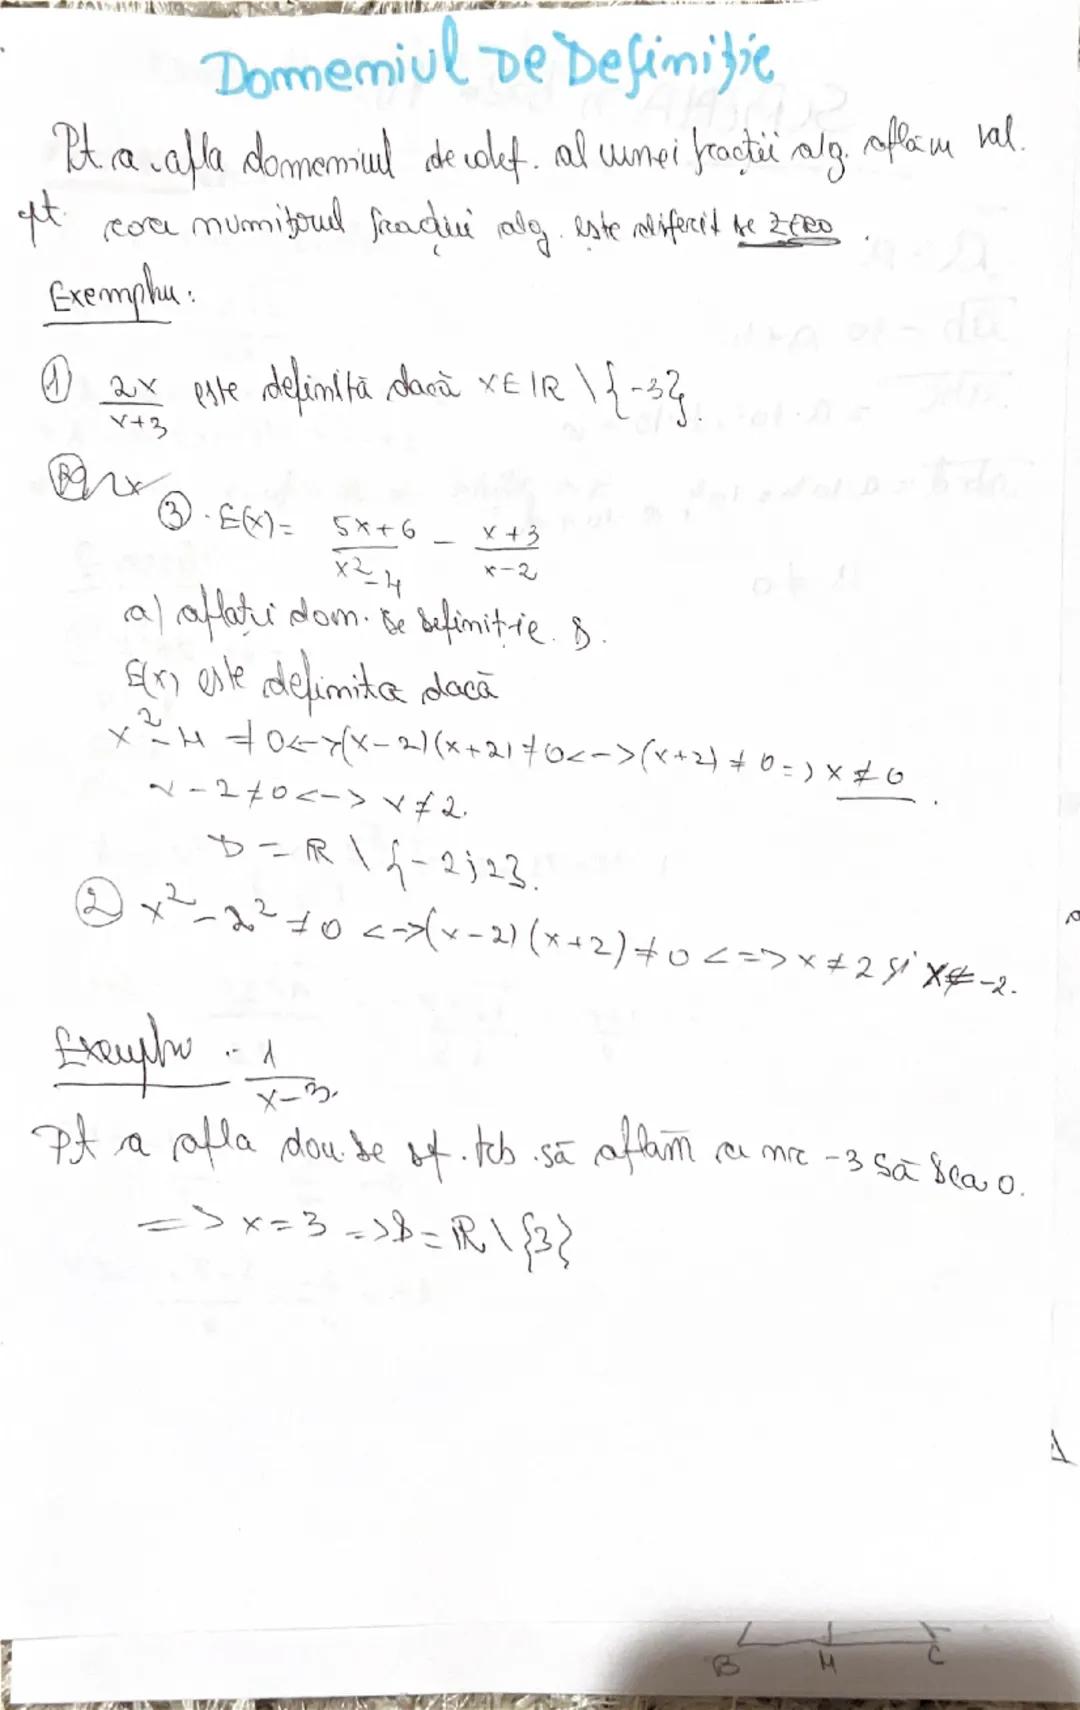 Domeniul De Definiție
Pt. a afla domeniul de def. al unei fracții alg. aflăm val.
pt. care numitorul fracției alg. este diferit de ZERO.
Exemplu:
① 2x/x+3 este definită dacă x∈ℝ \ {-3}.
③. E(x)= 5x+6/x²-4 - x+3/x-2
a) aflați dom. de definiție D.
E(x) este definita dacă
x²-4 ≠0<->(x-2)(x+2)≠0<->(x+2)≠0=>x≠0.
x-2≠0<->x≠2.
D=ℝ \ {-2;2}.
② x²-2²≠0 <->(x-2)(x+2)≠0<=>x≠2 și x≠-2.
Exemplu: 1/x-3.
Pt a afla dom. de df. tb să aflăm ce nr -3 să dea 0.
=> x=3 =>D=ℝ \ {3}
B M C